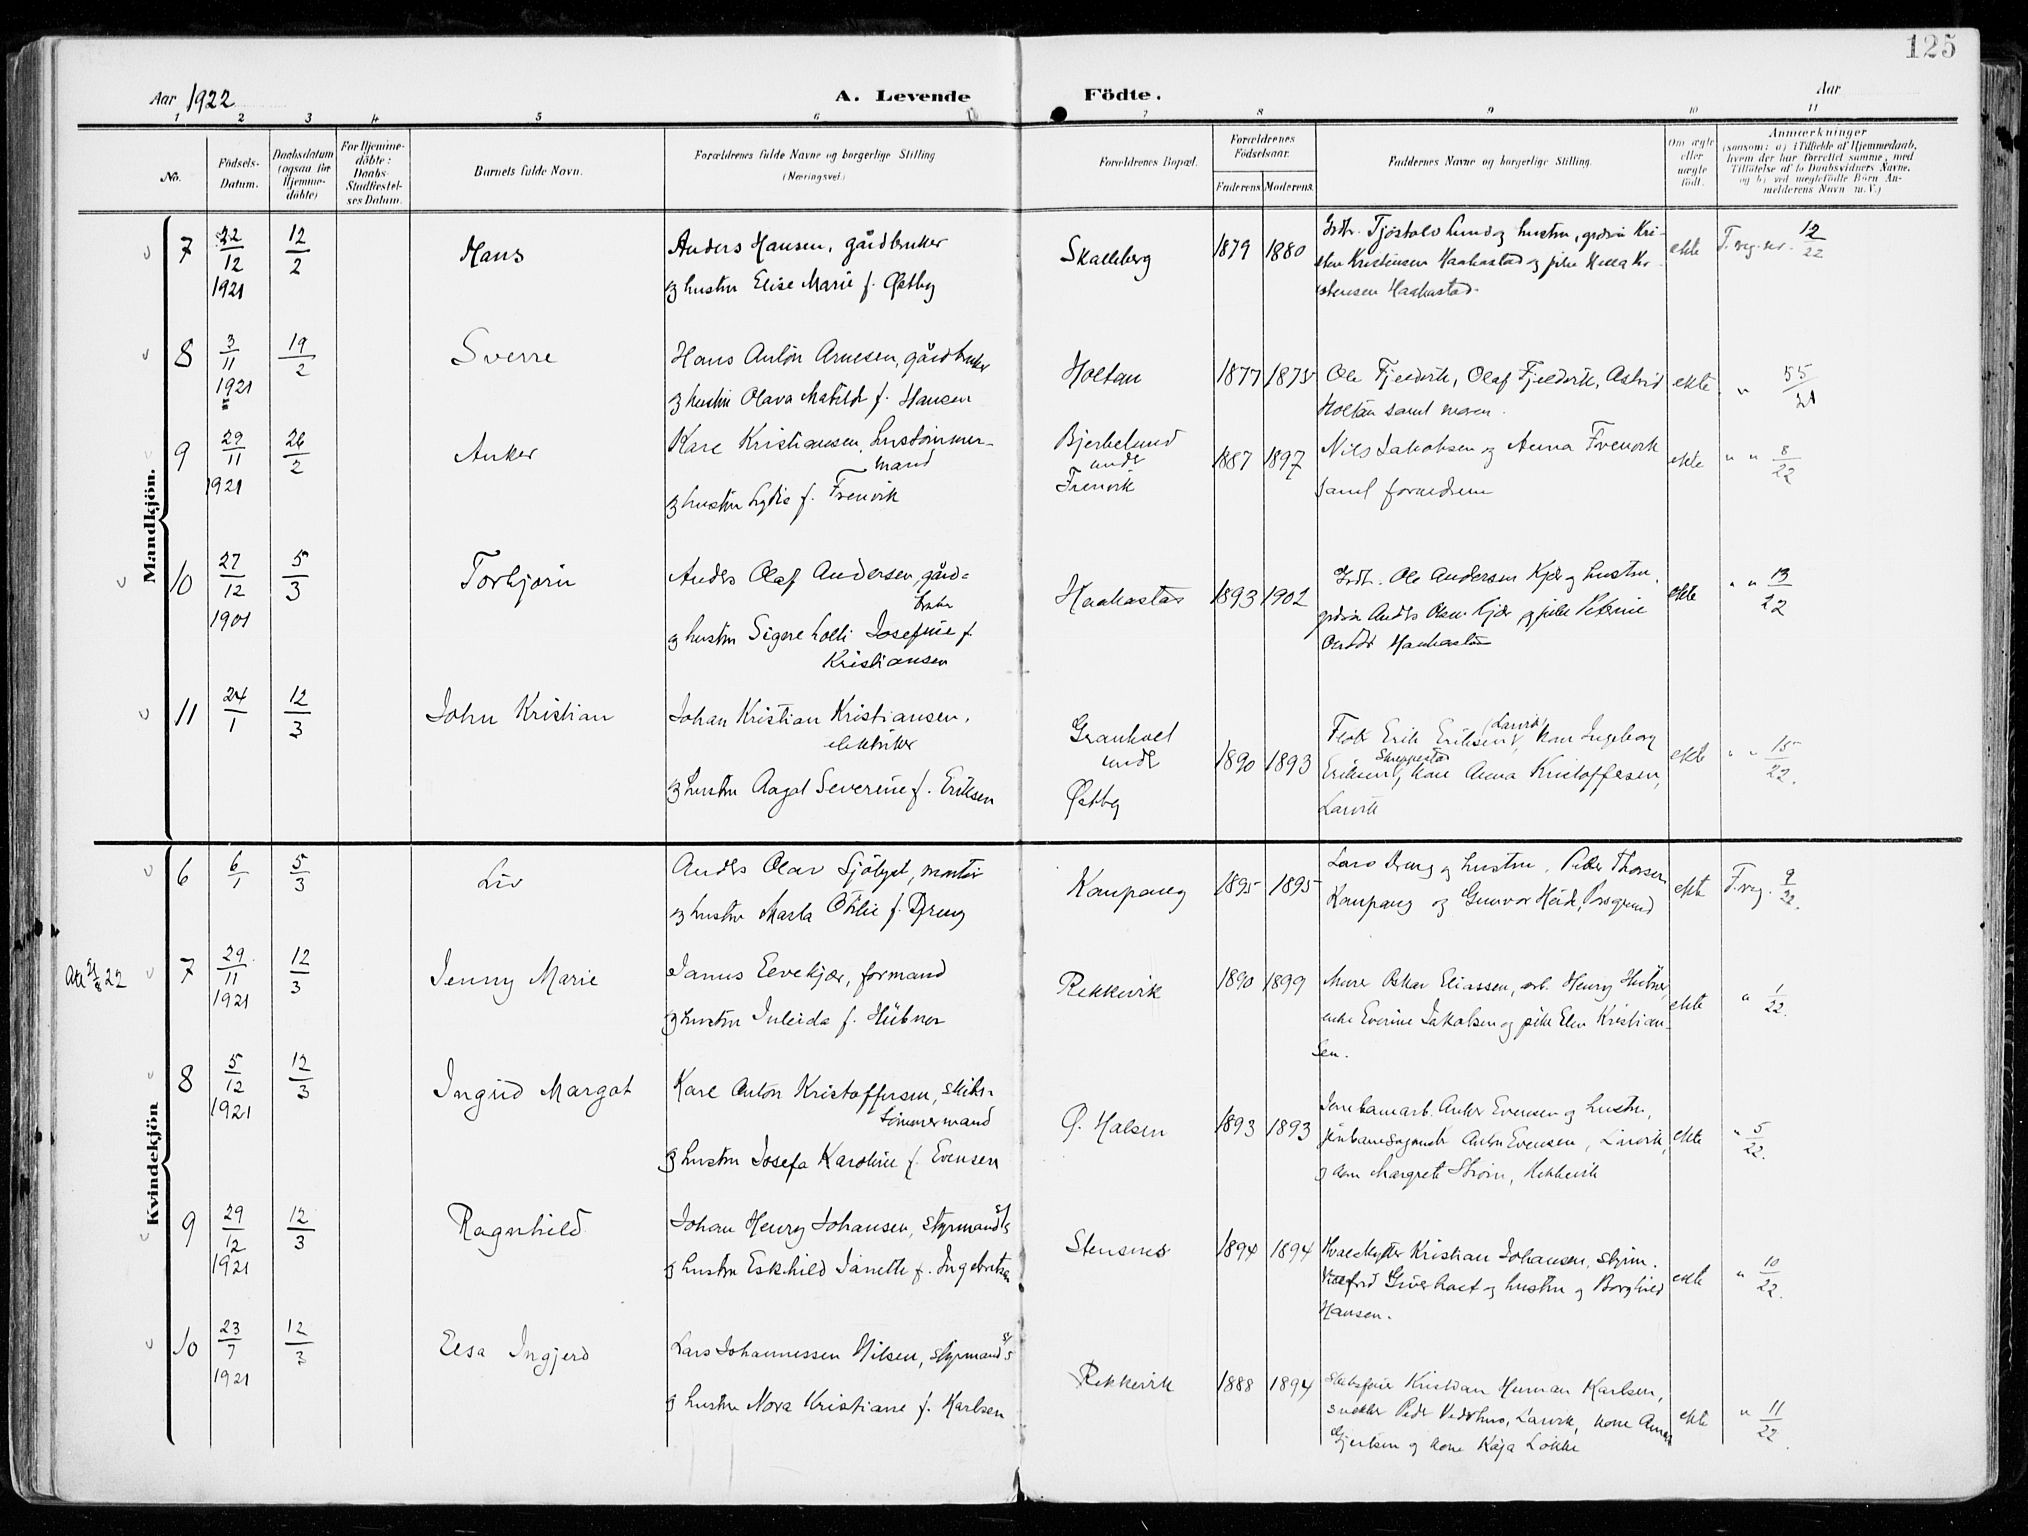 125
Aar 1922
A. Levende Födte.
Aar
1 2 3 4 5 6 7 8 9 10 11
No.
Födsels-Datum.
Daabsdatum (ogsaa for Hjemme-döbte)
For Hjemme-döbte: Daabs-Stadfæstel-ses Datum.
Barnets fulde Navn.
Forældrenes fulde Navne og borgerlige Stilling (Næringsvei.)
Forældrenes Bopæl.
Forældrenes Födselsaar.
Faderens Moderens
Faddernes Navne og borgerlige Stilling.
Om ægte eller uægte födt.
Anmærkninger
(saasom: a) i Tilfælde af Hjemmedaab,
hvem der har forrettet samme, med
Tilföielse af to Daabsvidners Navne,
og b) ved uægtefödte Börn An-
melderens Navn m.V.)
Mandkjön.
7 22/12 1921 12/2 Hans
Anders Hansen, gårdbruker
og hustru Elise Marie f. Østby
Skalleberg 1879 1880
Grdbr. Tjøstolv Lund og hustru, grdsøn Kri-
sten Kristensen Haakastad og pike Helga Kri-
stensen Haakastad.
ekte F. reg. nr. 12/22
8 3/11 1921 19/2 Sverre
Hans Anton Arnesen, gårdbruker
og hustru Olava Matilde f. Hansen
Holtan 1877 1875
Ole Fjeldvik, Olaf Fjeldvik, Astrid
Holtan samt moren.
ekte " 55/21
9 29/11 1921 26/2 Anker
Karl Kristiansen, hustømmer-
mand
og hustru Lydia f. Frenvik
Bjerkelund
under
Frenvik
1887 1897
Nils Jakobsen og Anna Frenvik
samt foreldrene
ekte " " 8/22
10 27/12 1901 5/3 Torbjørn
Anders Olaf Andersen, gård-
bruker
og hustru Signe Lolli Josefine f.
Kristiansen
Haakastad 1893 1902
Grdbr. Ole Andersen Kjær og hustru,
grdsøn Anders Olsen Kjær og pike Petrine
Haakastad
ekte " " 13/22
11 24/1 12/3 John Kristian
Johan Kristian Kristiansen,
elektriker
og hustru Aagot Severine f. Eriksen
Granholt
under
Østby
1890 1893
Erik Eriksen, Larvik, kone Ingeborg
Eriksen, kone Anna Kristoffersen,
Larvik
ekte " " 15/22.
Kvindekjön
6 6/1 5/3 Liv
Anders Olav Sjølyst, montør
og hustru Marta Otilie f. Dreng
Kaupang 1895 1895
Lars Dreng og hustru, Peder Thorsen
Kaupang og Gunvor Heide, Porsgrund
ekte F. reg. 9/22.
7 29/11 1921 12/3 Jenny Marie
Janus Eevekjær, formand
og hustru Inleida f. Hübner
Rekkevik 1890 1899
Murer Oskar Eliassen, arb. Henry Hübner,
enke Everine Jakobsen og pike Elen Kristian-
sen.
ekte " 1/22.
8 5/12 1921 12/3 Ingrid Margot
Karl Anton Kristoffersen, skibs-
tømmermand
og hustru Josefa Karoline f. Evensen
Ø. Halsen 1893 1893
Jernbanearb. Anker Evensen og hustru,
Anton Evensen, Larvik,
og Margrete Strøm, Rekkevik
ekte " 5/22.
9 29/12 1921 12/3 Ragnhild
Johan Henry Johansen, styrmand
og hustru Eskhild Janette f. Ingebretsen
Stensnes 1894 1894
Hvalskytter Kristian Johansen, styrm.
og hustru og Borghild
Hansen.
ekte " 10/22.
10 23/7 1921 12/3 Elsa Ingjerd
Lars Johannessen Nilsen, styrmand
og hustru Nora Kristiane f. Karlsen
Rekkevik 1888 1894
Skibsfører Kristian Herman Karlsen,
snekker Peder Vedthus, Larvik, kone Anna
Gjertsen og kone Kaja Løkke
ekte " 11/22